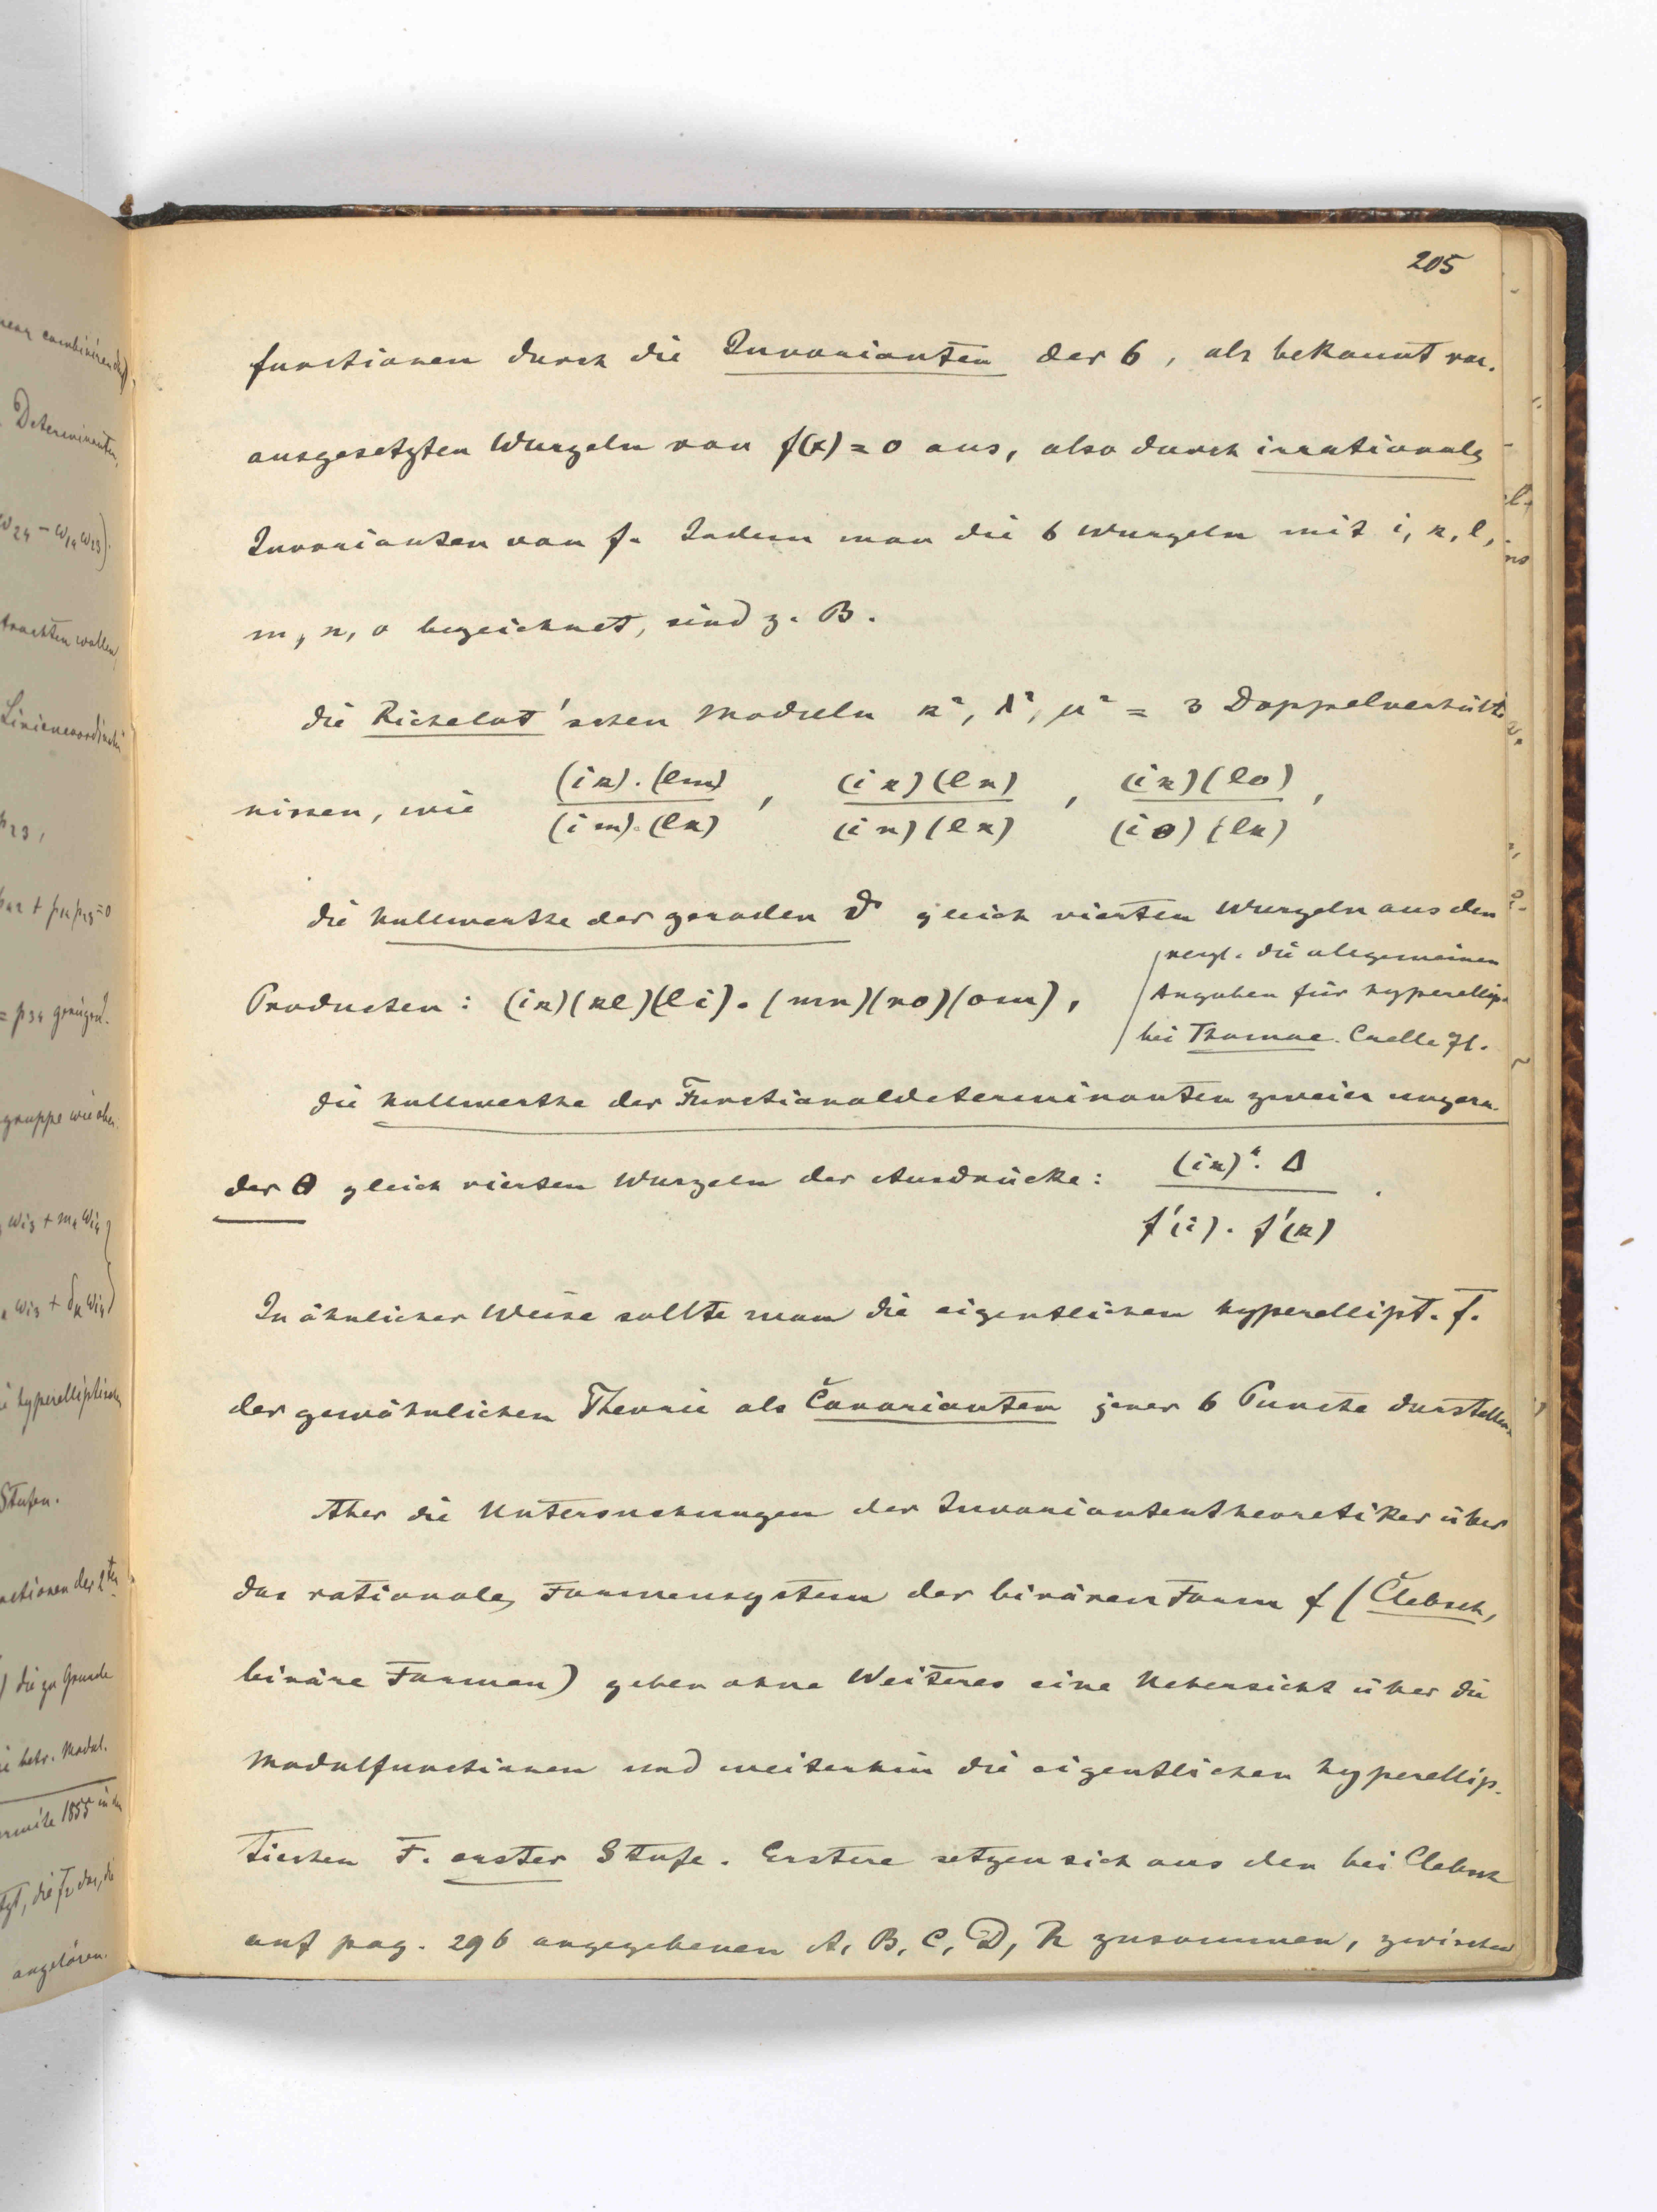 205
functionen durch die Invarianten der 6, als bekannt vor-
ausgesetzten Wurzeln von f(x) = 0 aus, also durch irrationale
Invarianten von f. Indem man die 6 Wurzeln mit i, k, l,
m, n, o bezeichnet, sind z. B.
die Richelot'schen Moduln k², λ², μ² = 3 Doppelverhält-
nissen, wie (ik).(lm)/(im).(lk), (ik)(ln)/(in)(lk), (ik)(lo)/(io)(lk),
die Nullwerthe der geraden ϑ gleich vierten Wurzeln aus den
Producten: (ik)(kl)(li).(mn)(no)(om),
vergl. die allgemeinen
Angaben für hyperellip.
bei Thomae. Crelle 71.
die Nullwerthe der Functionaldeterminanten zweier ungera-
der Θ gleich vierten Wurzeln der Ausdrücke: (ik)⁴. Δ / f'(i). f'(k) .
In ähnlicher Weise sollte man die eigentlichen hyperellipt. f.
der gewöhnlichen Theorie als Covarianten jener 6 Puncte darstellen.
Aber die Untersuchungen der Invariantentheoretiker über
das rationale Formensystem der binären Form f (Clebsch,
binäre Formen) geben ohne Weiteres eine Uebersicht über die
Modulfunctionen und weiterhin die eigentlichen hyperellip-
tischen F. erster Stufe. Erstere setzen sich aus den bei Clebsch
auf pag. 296 angegebenen A, B, C, D, R zusammen, zwischen